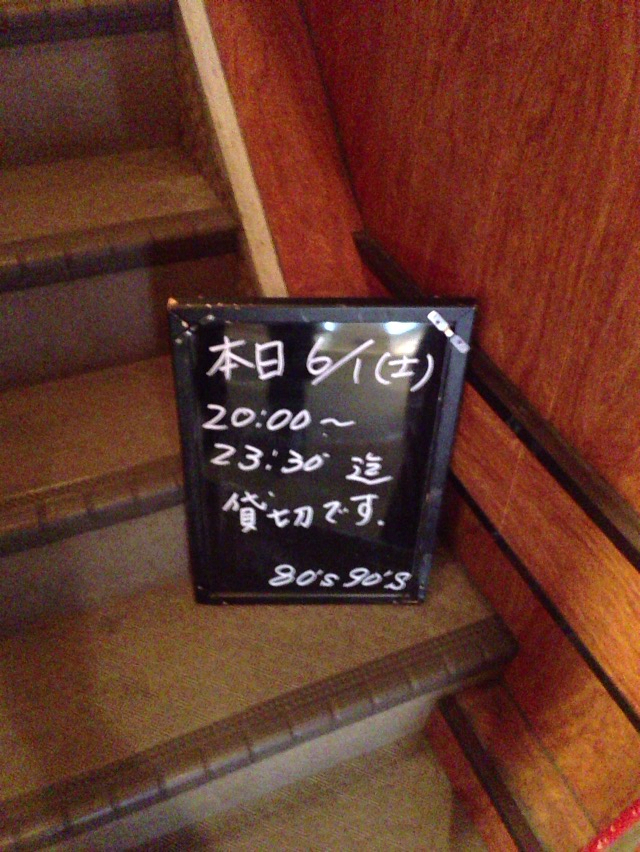 本日 6/1(土)
20:00〜
23:30 迄
貸切です.
80's 90's